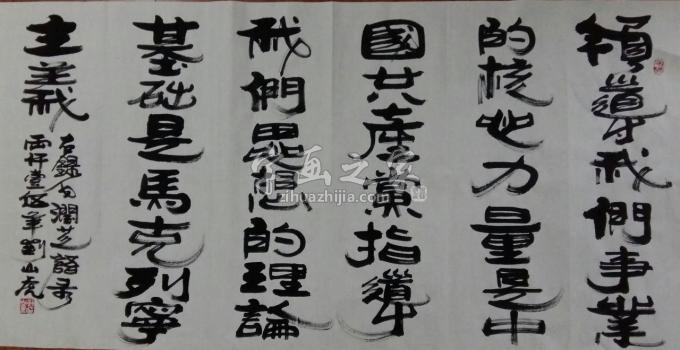 領導我們事業
的核心力量是中
國共產黨指導
我們思想的理論
基础是馬克列寧
主義
右錄毛潤芝語录
劉山虎
字画之家
zihuazhijia.com